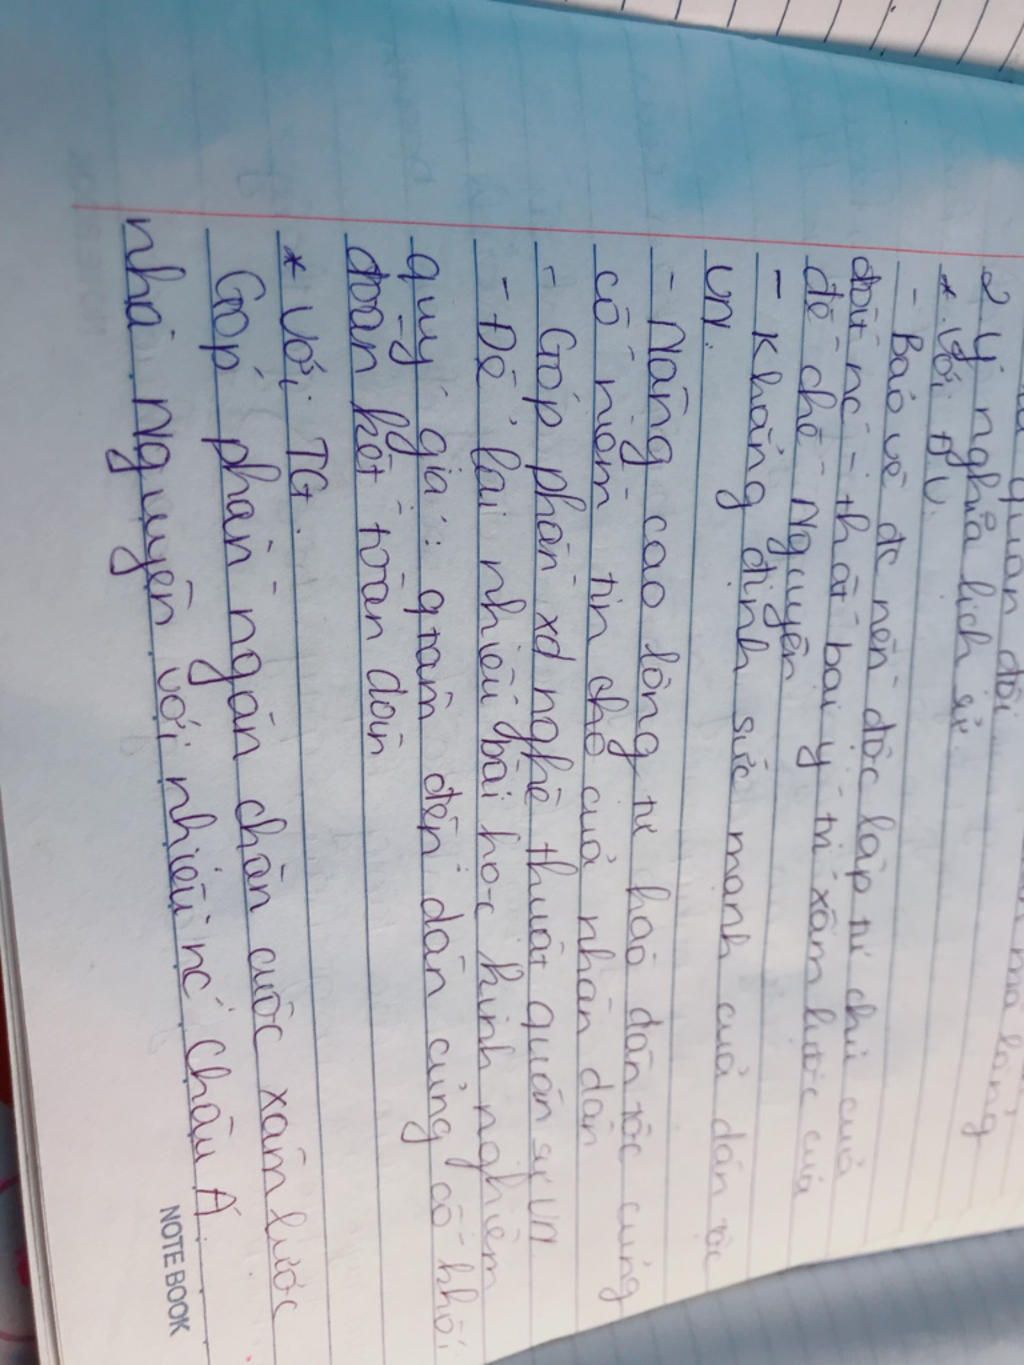 quân đội
2 Ý nghĩa lịch sử
* Với ĐV.
- Bảo vệ đc nền độc lập tự chủ của
đất nc - thất bại ý trí xâm lược của
đế chế Nguyên
- Khẳng định sức mạnh của dân tộc
VN.
- Nâng cao lòng tự hào dân tộc củng
cố niềm tin cho của nhân dân
- Góp phần xd nghệ thuật quân sự VN
- Để lại nhiều bài học kinh nghiệm
quý giá: quan tâm đến dân củng cố khối
đoàn kết toàn dân
* Với TG.
Góp phần ngăn chặn cuộc xâm lược
nhà Nguyên với nhiều nc châu Á.
NOTE BOOK